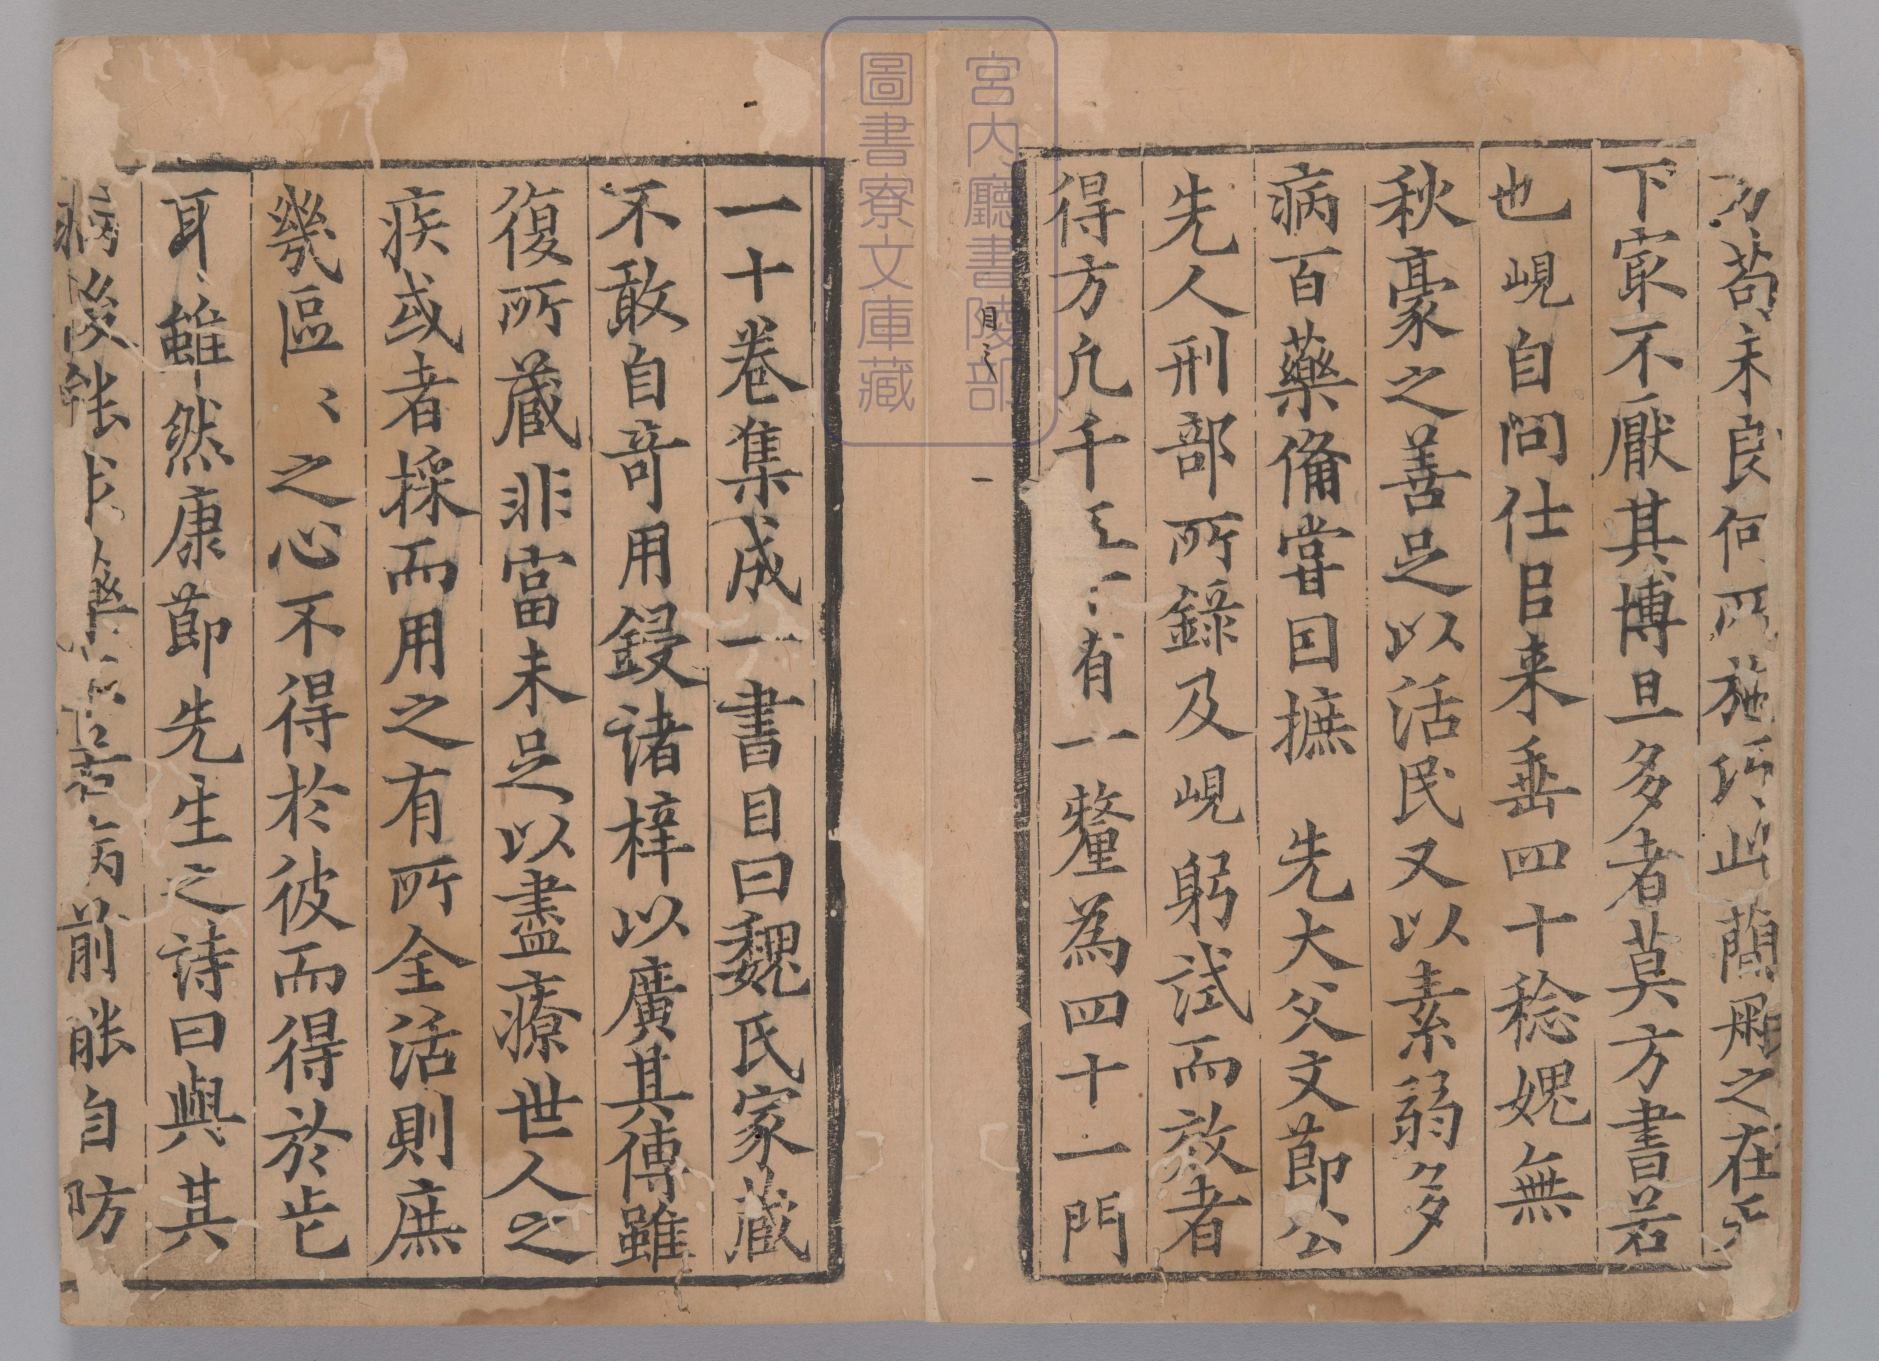 方苟未良何所施巧此蘭冊之在天
下寂不厭其博且多者莫方書若
也峴自問仕㠯来垂四十稔媿無
秋豪之善足以活民又以素弱多
病百藥備甞因摭 先大父文節公
先人刑部所錄及峴躬試而效者
得方凢千有一釐為四十一門
一十卷集成一書目曰魏氏家藏
不敢自竒用鋟諸梓以廣其傳雖
復所蔵非富未足以盡療世人之
疾或者採而用之有所全活則庶
幾區〻之心不得於彼而得於此
耳雖然康節先生之詩曰與其
病後能求藥不若病前能自防
目之
一
宮内廳書陵部
圖書寮文庫藏